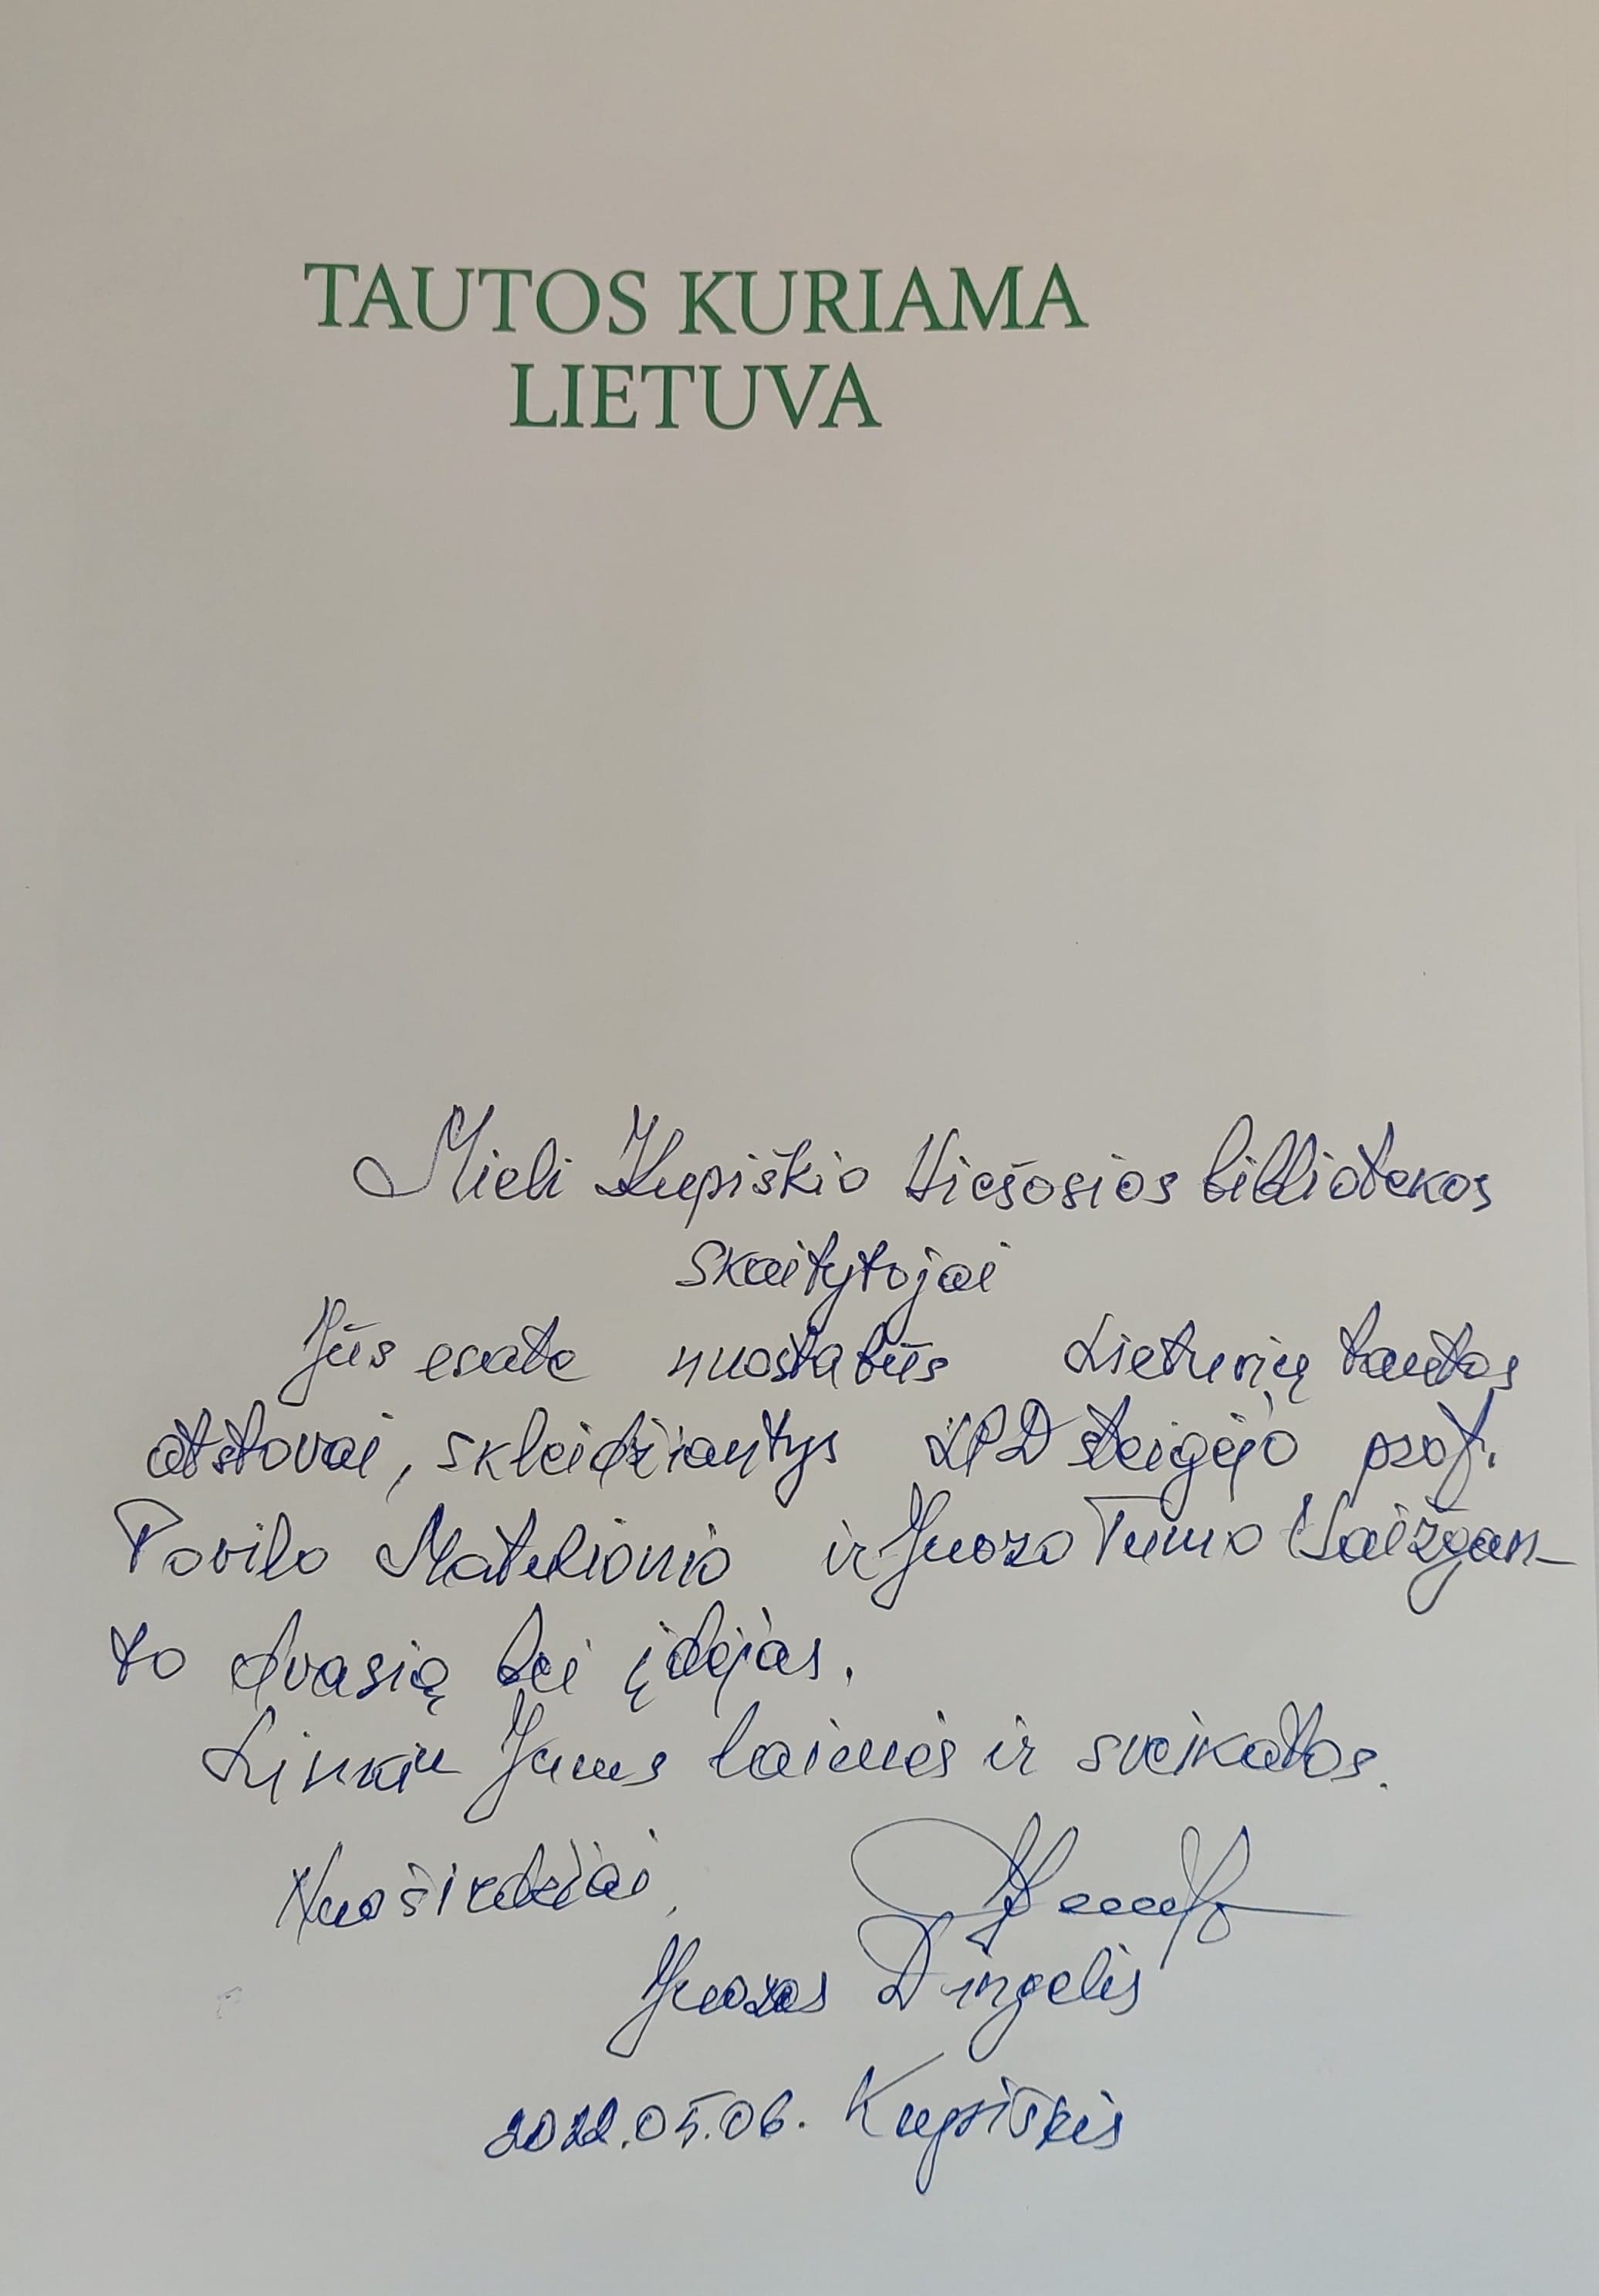 TAUTOS KURIAMA
LIETUVA
Mieli Kupiškio Viešosios bibliotekos
skaitytojai
Jūs esate nuostabūs Lietuvių tautos
atstovai, skleidžiantys LPD steigėjo prof.
Povilo Matulionio ir Juozo Tumo Vaižgan-
to dvasią bei įdėjas.
Linkiu Jums laimės ir sveikatos.
Nuoširdžiai,
Juozas Dingelis
2022.05.06. Kupiškis